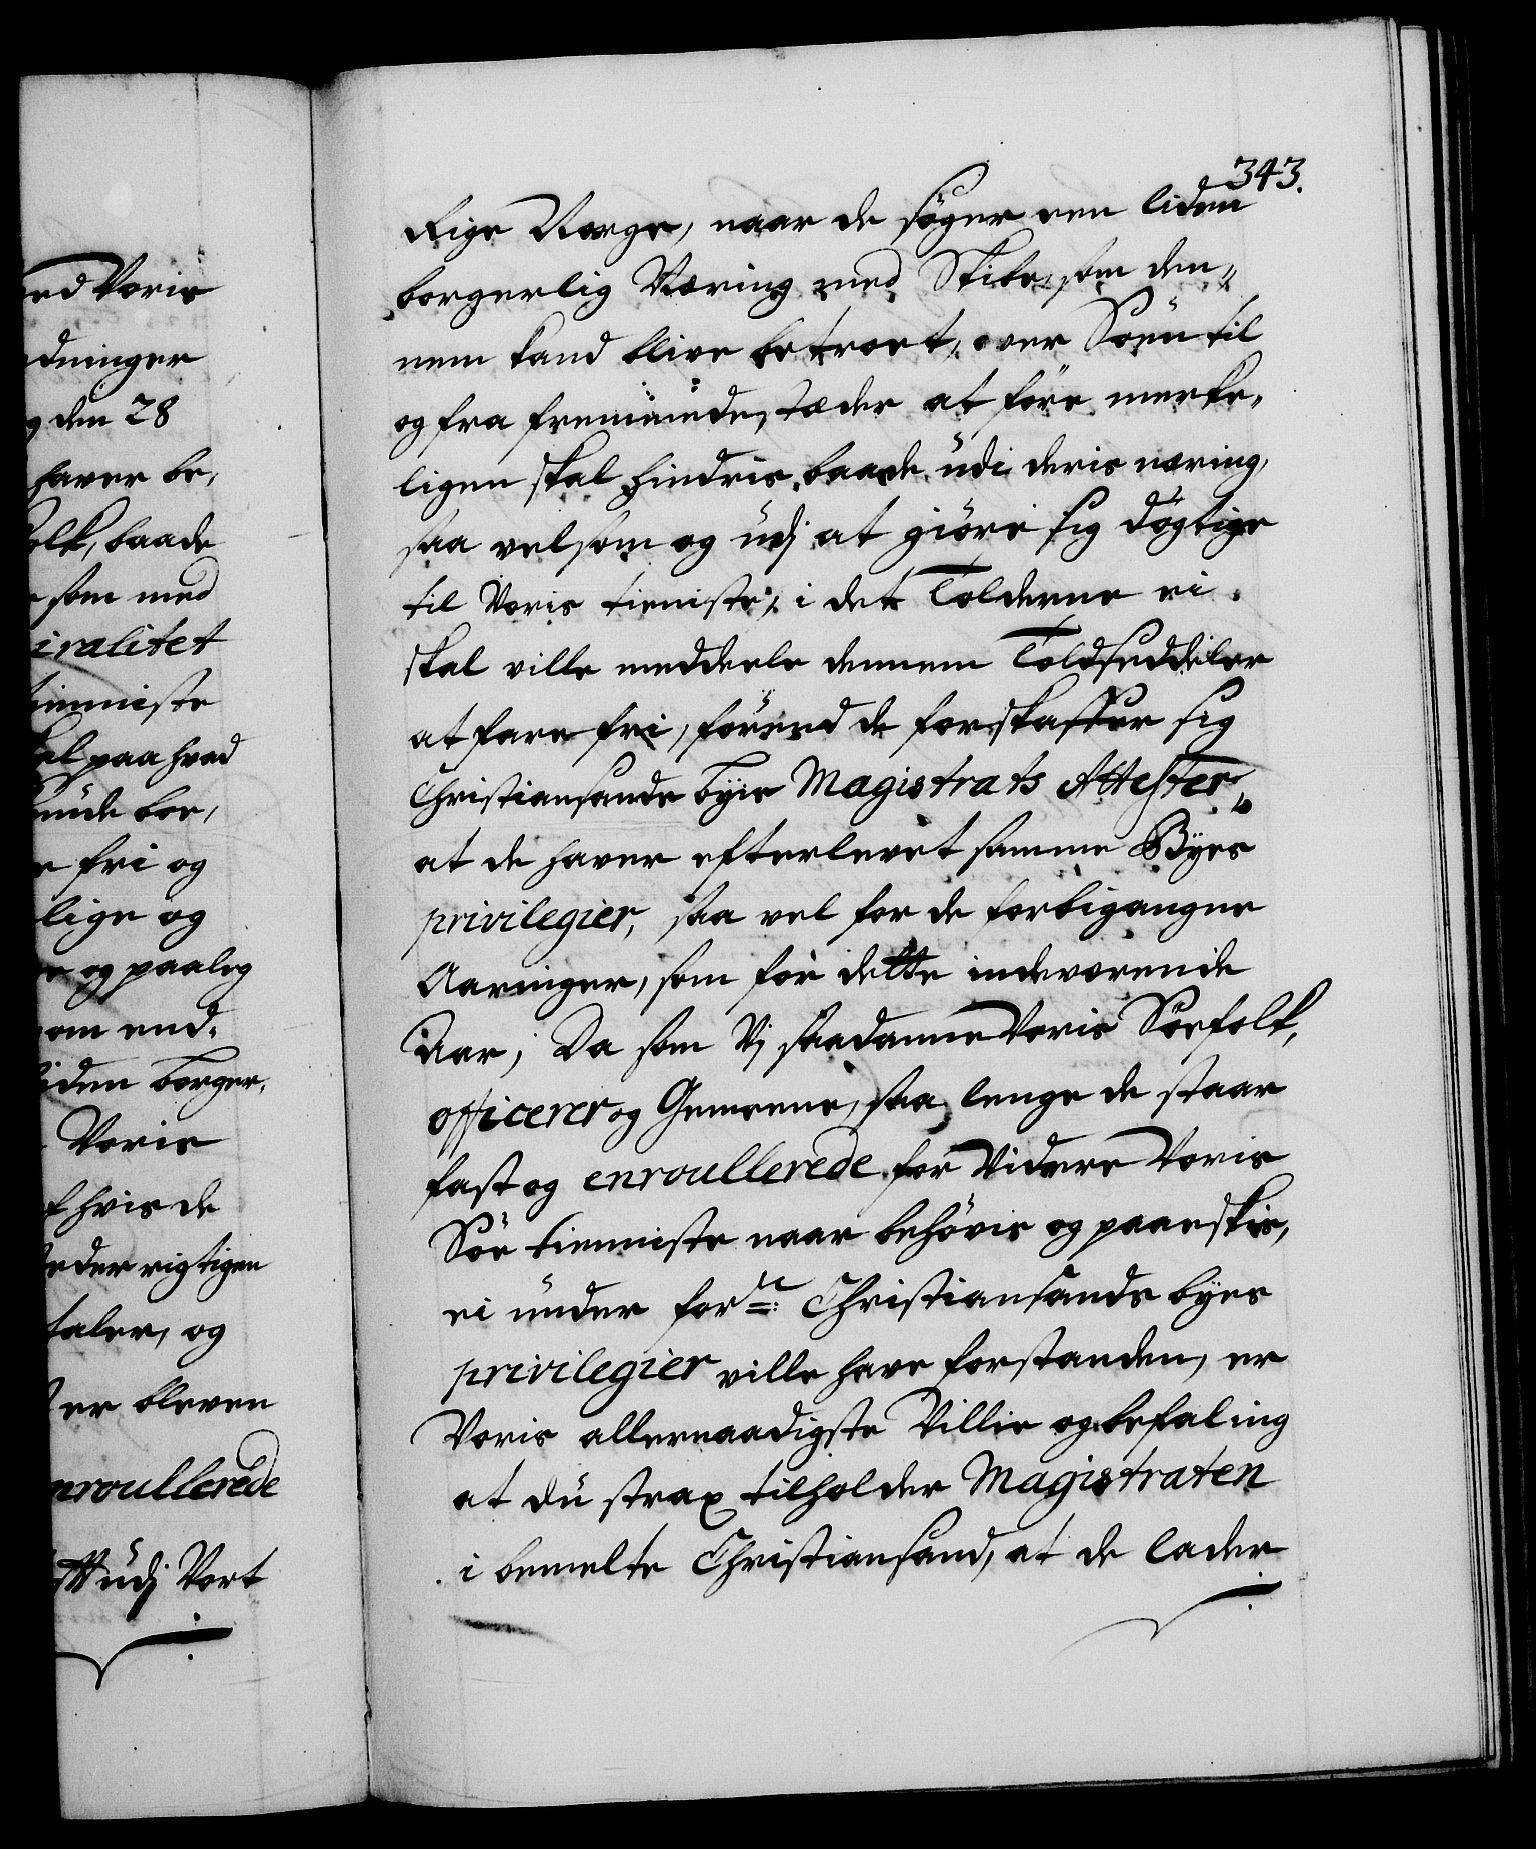 ed Voris
dninger
g den 28
haver be,
olk, baade
som med
iralitet
ienniste
al paa hvad
unde bor,
e fri og
lige og
e og paaleg
om end,
iden borger,
Voris
f hvis de
eder rigtigen
taler, og
er bleven
nroullerede
udj Vort
343.
Rige Norge, naar de søger een liden
borgerlig Næring med Skibe, som den„
nem kand blive betroet, over Søen til
og fra fremmede stæder at føre merke„
ligen skal hindris, baade udi deris næring,
saa vel som og udj at giøre sig døgtige
til Voris tieniste, i det Tolderne ei
skal ville meddeele dennem Toldseddeler
at fare fri, førend de forskaffer sig
Christiansands byes Magistrats Attester„
at de haver efterlevet samme Byes
privilegier, saa vel for de forbigangne
Aaringer, som for dette indeværende
Aar; Da som Vj saadanne Voris Søefolk,
officerer og Gemeene, saa lenge de staar
fast og enroullerede for Videre Voris
Søe tienniste naar behøvis og paaeskis,
ei under for.ne Christiansands byes
privilegier ville have forstanden, er
Voris allernaadigste Villie og befaling
at du strax tilholder Magistraten
i bemelte Christiansand, at de lader